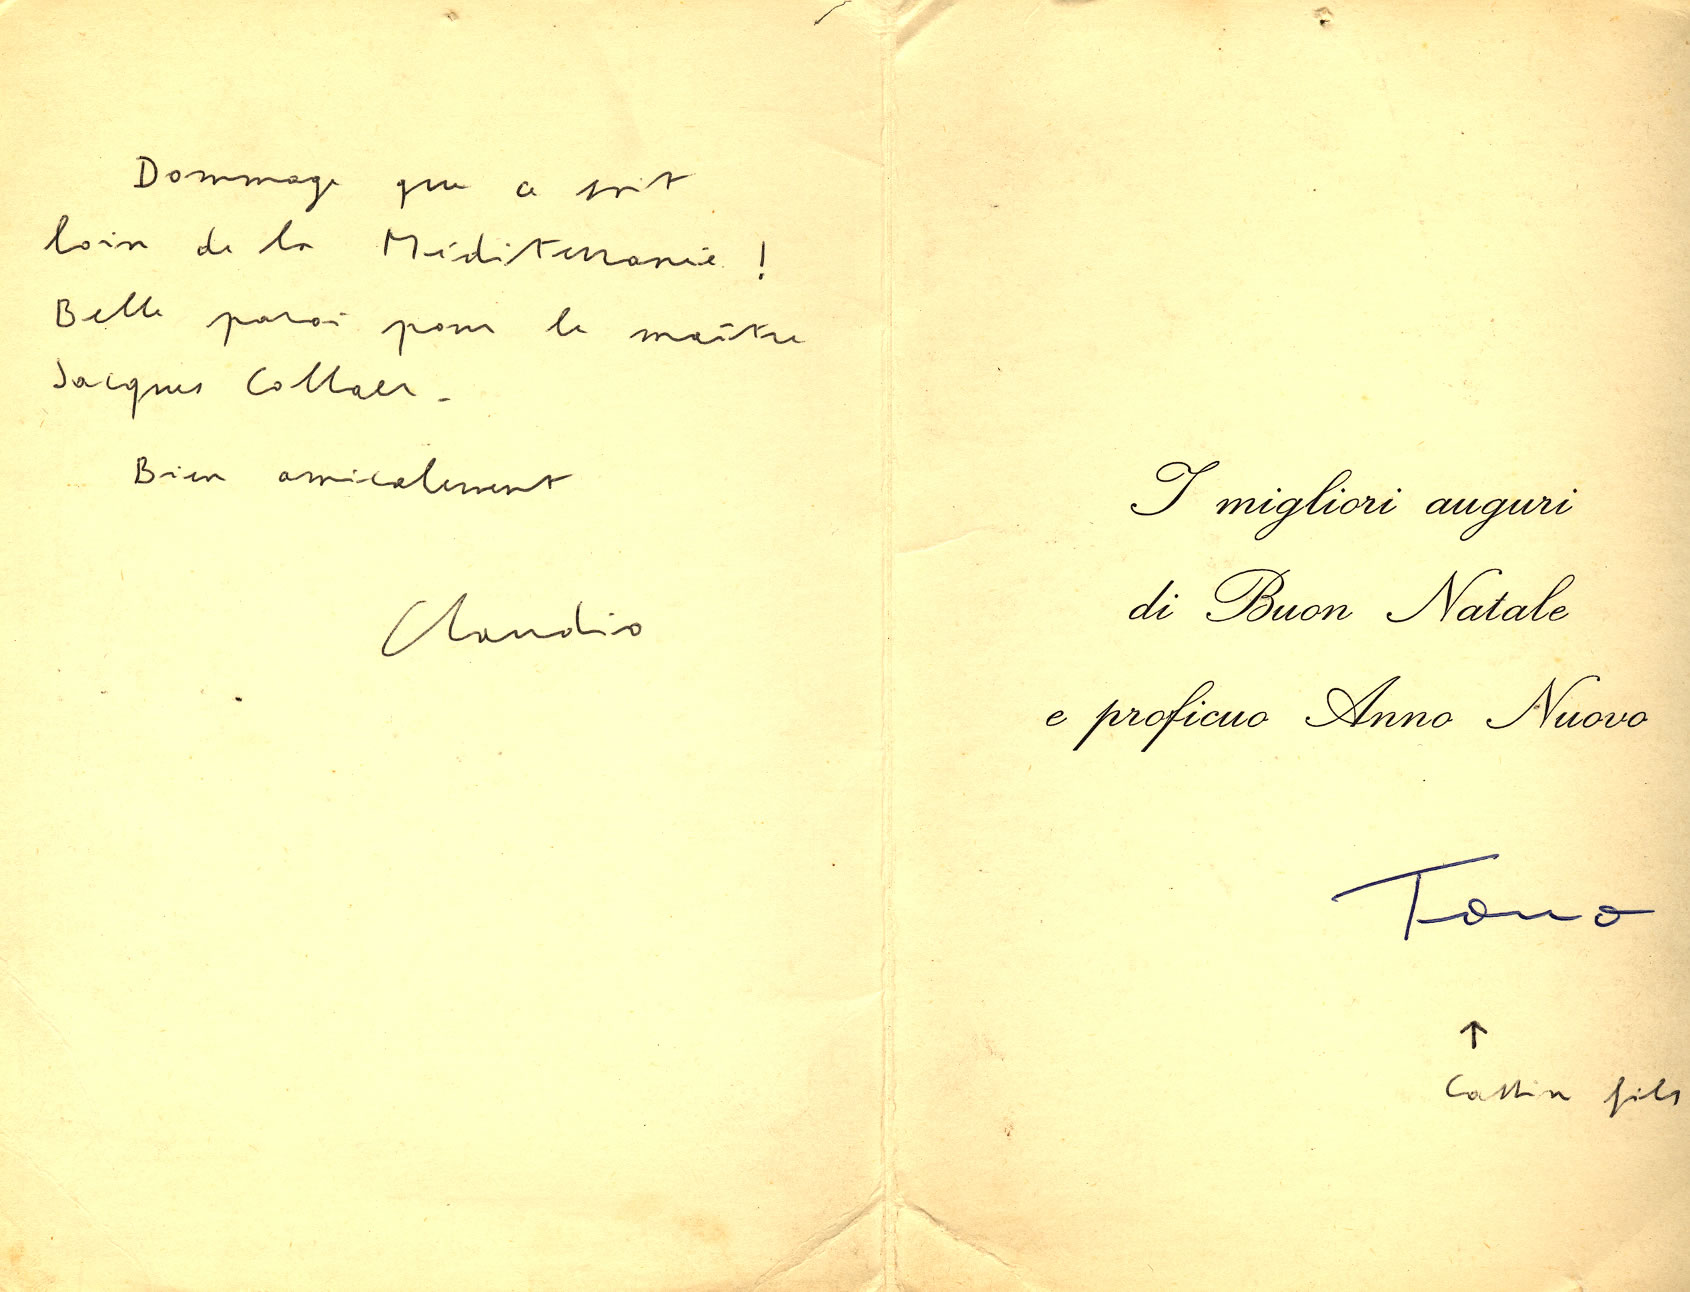 Dommage que ce soit
loin de la Méditerranée !
Belle paroi pour le maître
Jacques Collaer.
Bien amicalement
Claudio
I migliori auguri
di Buon Natale
e proficuo Anno Nuovo
Tono
↑
Cassin fils